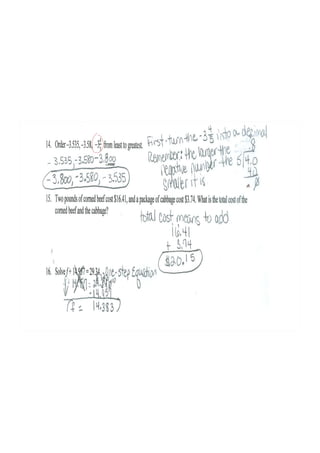 First-turn the -3 4/5 into a decimal
14. Order -3.535, -3.58, -3 4/5 from least to greatest.
Remember: the larger the
negative number the
smaller it is
.8
5)4.0
40
0
-3.535, -3.580 -3.800
-3.800, -3.580, -3.535
15. Two pounds of corned beef cost $16.41, and a package of cabbage cost $3.74. What is the total cost of the
corned beef and the cabbage?
total cost means to add
16.41
+ 3.74
$20.15
16. Solve f + = 29.34. One-step Equation
f =
14.383